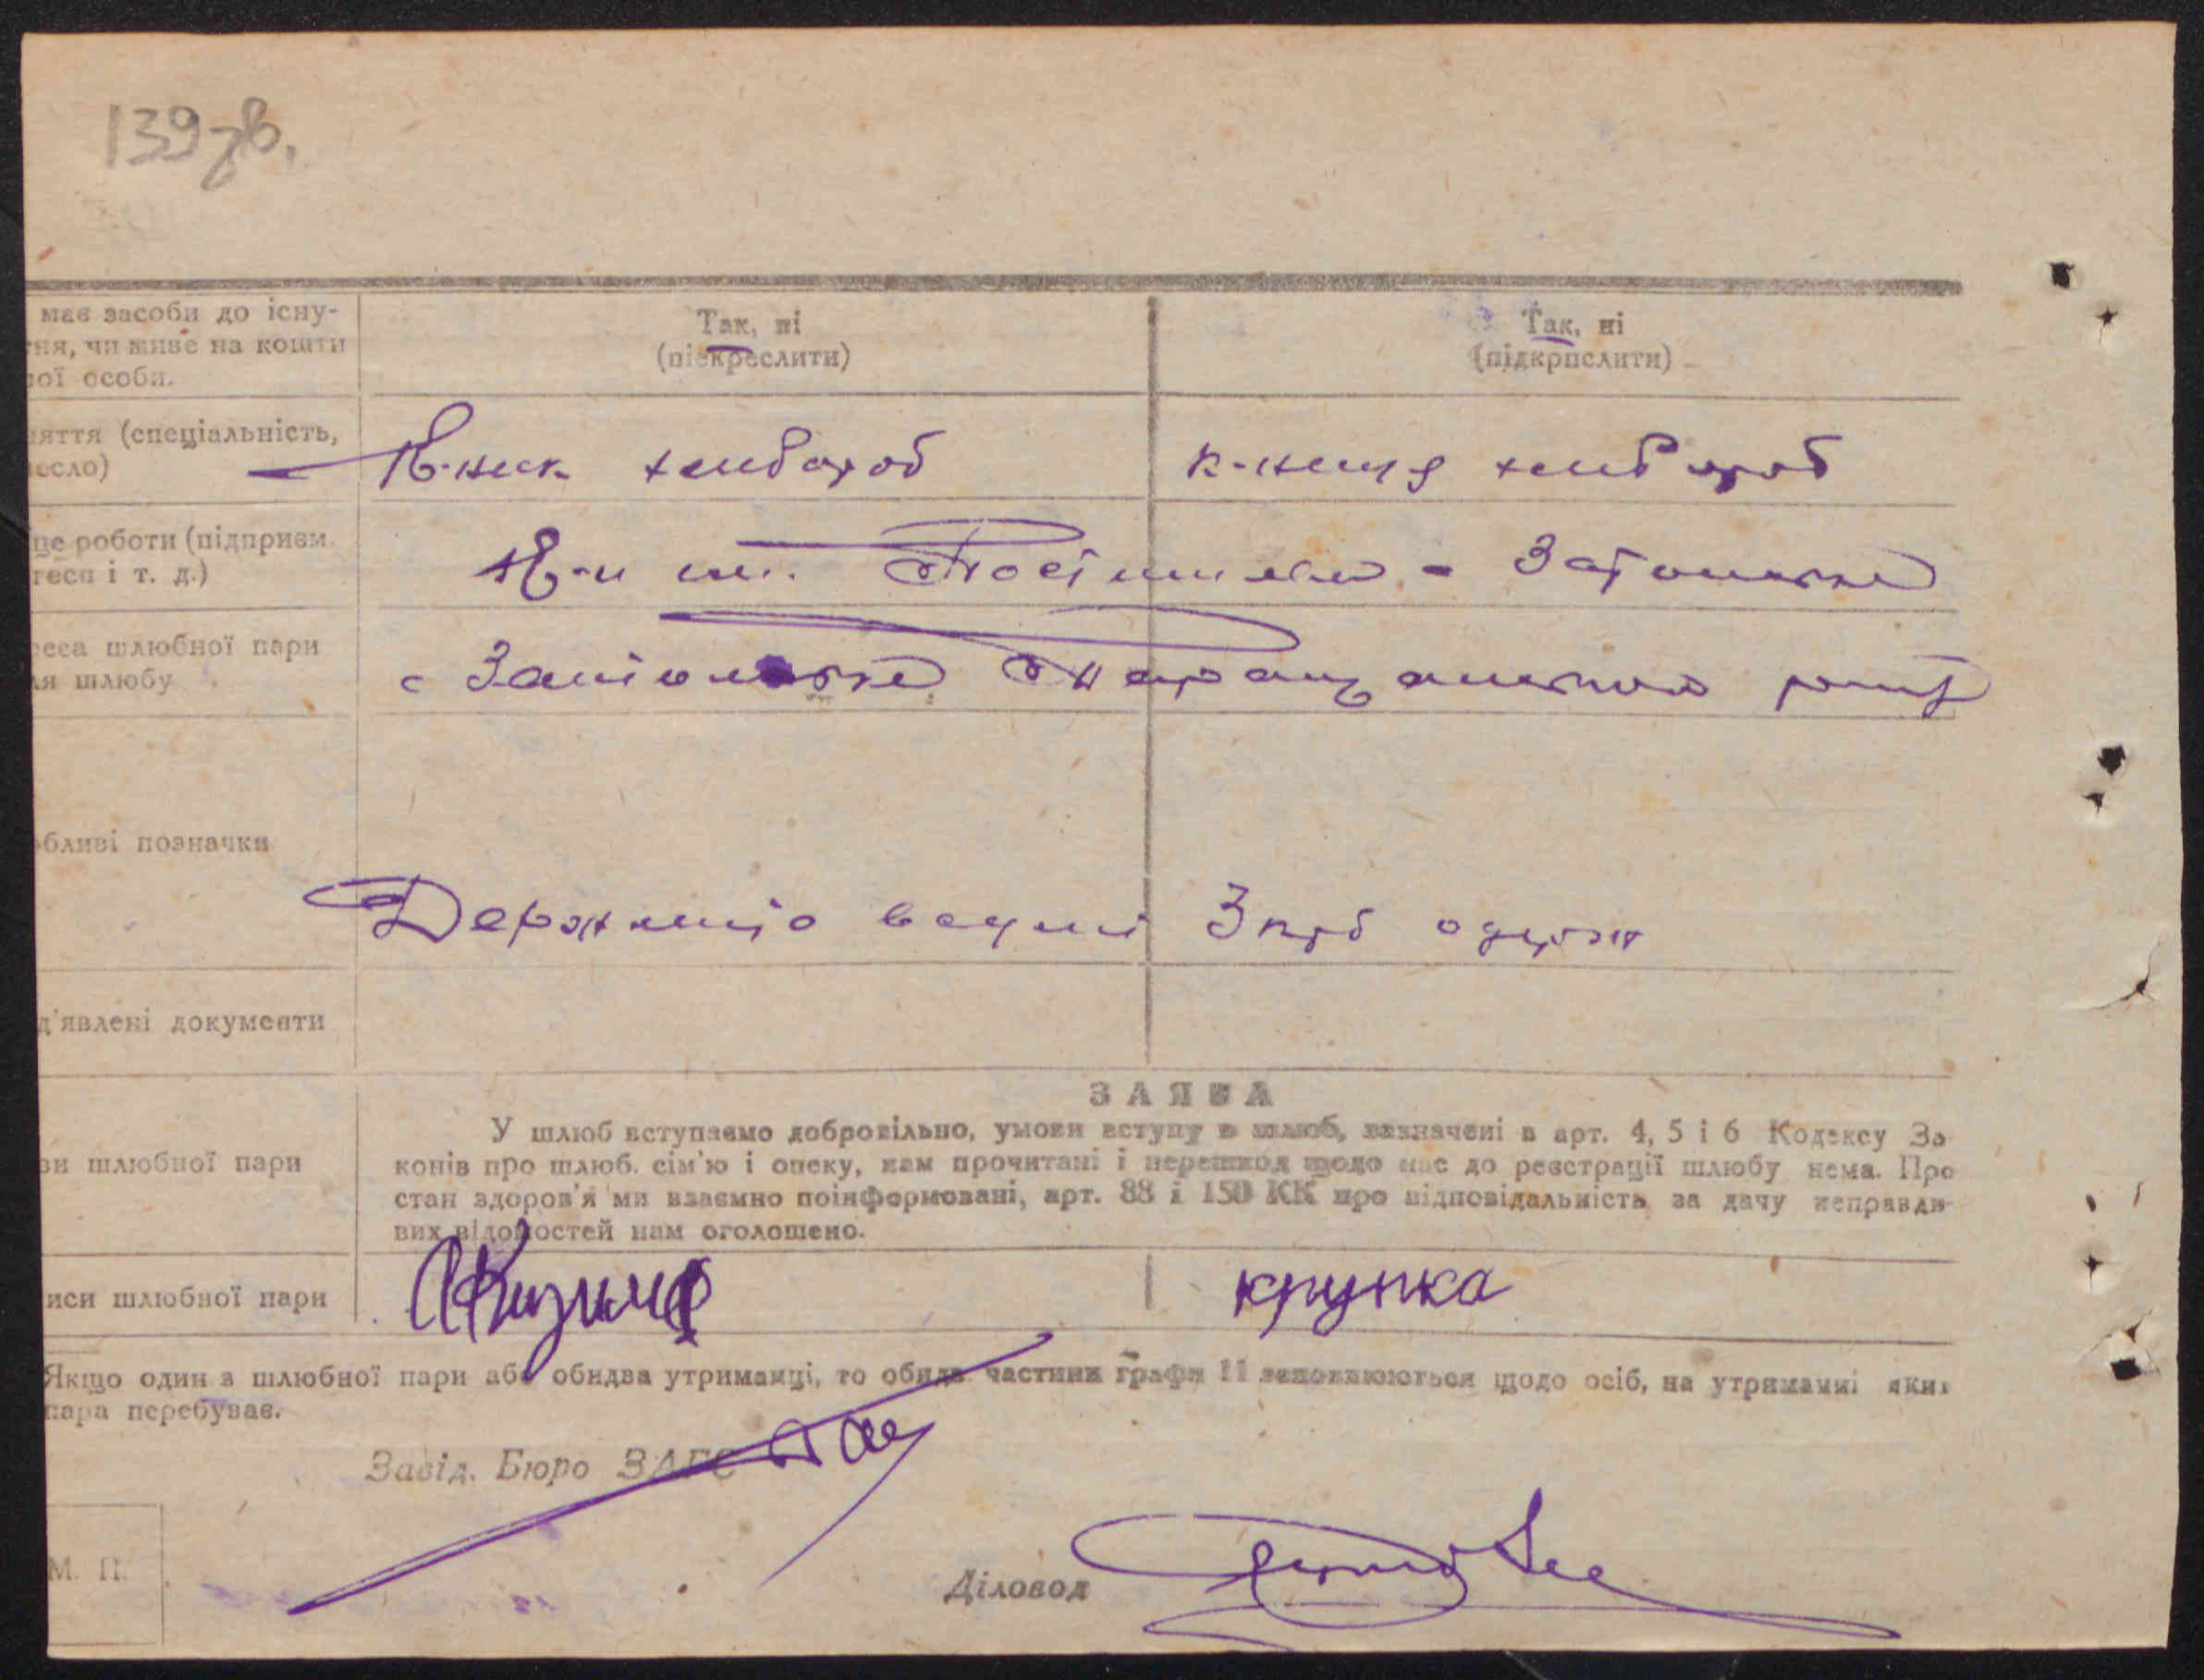 139зв.
має засоби до існу-
ня, чи живе на кошти
ої особи.
Так, ні
(підкреслити)
Так, ні
(підкрислити)
няття (спеціальність,
есло)
К-ник хлібороб
к-ниця хлібороб
це роботи (підприєм.
тесп і т. д.)
К-п ім. Постишева -
реса шлюбної пари
ля шлюбу
с
бливі позначки
Держмито
3 крб
д'явлені документи
ЗАЯВА
ви шлюбної пари
У шлюб вступаємо добровільно, умови вступу в шлюб, зазначені в арт. 4, 5 і 6 Кодексу За
конів про шлюб. сім'ю і опеку, нам прочитані і перешкод щодо нас до реєстрації шлюбу нема. Про
стан здоров'я ми взаємно поінформовані, арт. 88 і 150 КК про відповідальність за дачу неправди-
вих відомостей нам оголошено.
иси шлюбної пари
крупка
Якщо один з шлюбної пари або обидва утриманці, то обидві частини графи 11 заповнюються щодо осіб, на утриманні яких
пара перебуває.
Завід. Бюро ЗАГС
М. П.
Діловод